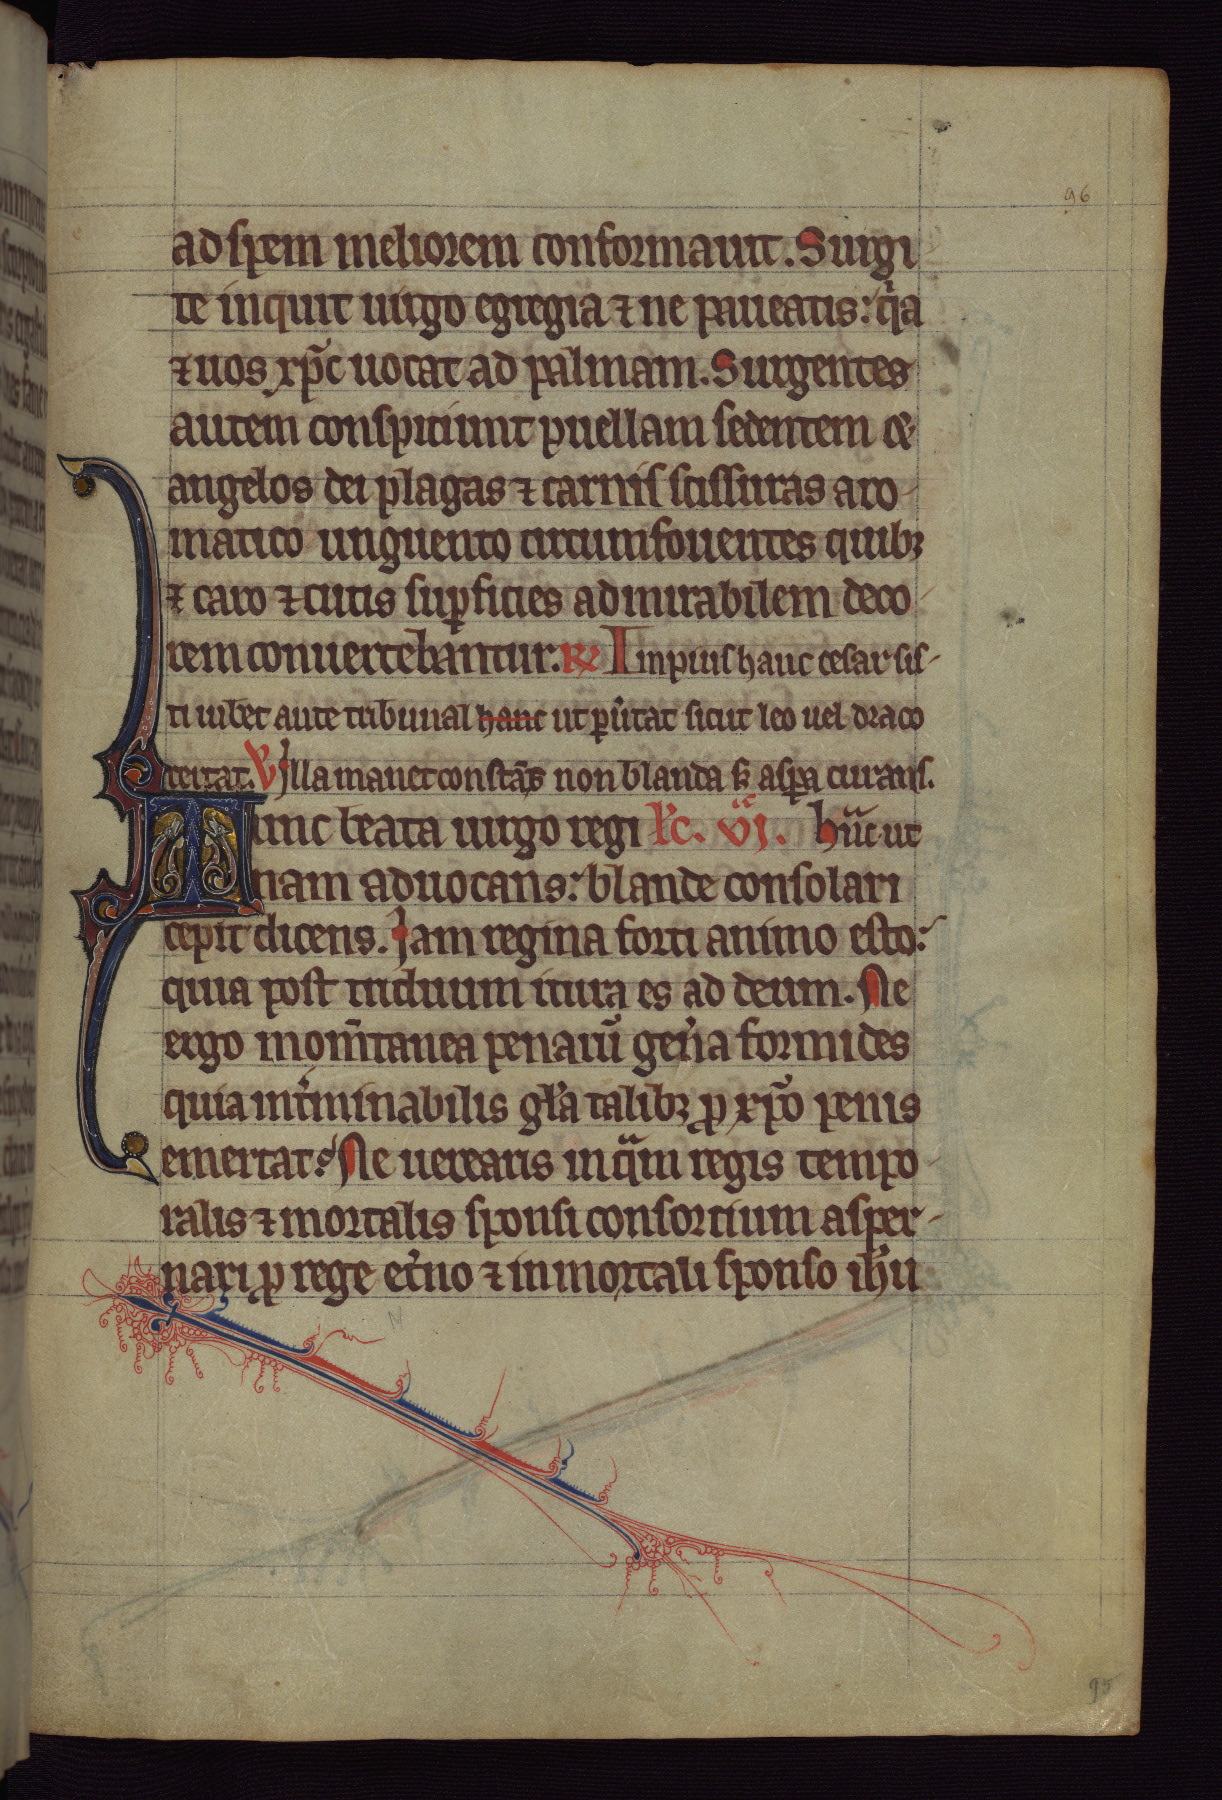 96
ad spem meliorem conformauit. Surgi
te inquit uirgo egregia ⁊ ne paueatis: qͥa
⁊ uos xp̄c uocat ad palmam. Surgentes
autem conspiciunt puellam sedentem &
angelos dei plagas ⁊ carnis scissuras aro-
matico unguento circumfouentes quibꝫ
⁊ caro ⁊ cutis suꝑficies admirabilem deco-
rem conuertebantur. R̸ Impius hanc cesar sis-
ti iubet ante tribunal hanc ut ꝑimat sicut leo uel draco
territat. V̸ Illa manet constās non blanda s̄ aspͣa curans.
Tunc beata uirgo regi lc̄. vj. hūc ut
nam aduocans: blande consolari
cepit dicens. Jam regina forti animo esto:
quia post triduum itura es ad deum. Ne
ergo mom̄tanea penarū gen̾a formides
quia int̾minabilis gl̄a talibꝫ ꝓ xp̄o penis
emercat᷑. Ne uerearis inqͣm regis tempo-
ralis ⁊ mortalis sponsi consortium asper-
nari ꝓ rege et̾no ⁊ inmortali sponso ih̄u
95